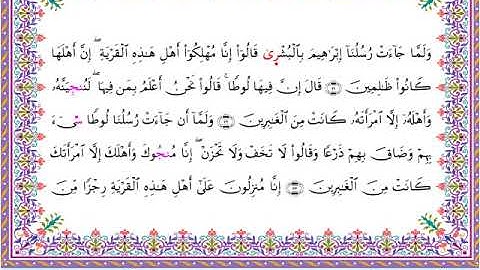 وَلَمَّا جَآءَتْ رُسُلُنَآ إِبْرَٰهِيمَ بِٱلْبُشْرَىٰ قَالُوٓا۟ إِنَّا مُهْلِكُوٓا۟ أَهْلِ هَٰذِهِ ٱلْقَرْيَةِ ۖ إِنَّ أَهْلَهَا
كَانُوا۟ ظَٰلِمِينَ ٣١ قَالَ إِنَّ فِيهَا لُوطًا ۚ قَالُوا۟ نَحْنُ أَعْلَمُ بِمَن فِيهَا ۖ لَنُنجِيَنَّهُۥ
وَأَهْلَهُۥٓ إِلَّا ٱمْرَأَتَهُۥ كَانَتْ مِنَ ٱلْغَٰبِرِينَ ٣٢ وَلَمَّآ أَن جَآءَتْ رُسُلُنَا لُوطًا سِىٓءَ
بِهِمْ وَضَاقَ بِهِمْ ذَرْعًا وَقَالُوا۟ لَا تَخَفْ وَلَا تَحْزَنْ ۖ إِنَّا مُنجُوكَ وَأَهْلَكَ إِلَّا ٱمْرَأَتَكَ
كَانَتْ مِنَ ٱلْغَٰبِرِينَ ٣٣ إِنَّا مُنزِلُونَ عَلَىٰٓ أَهْلِ هَٰذِهِ ٱلْقَرْيَةِ رِجْزًا مِّنَ